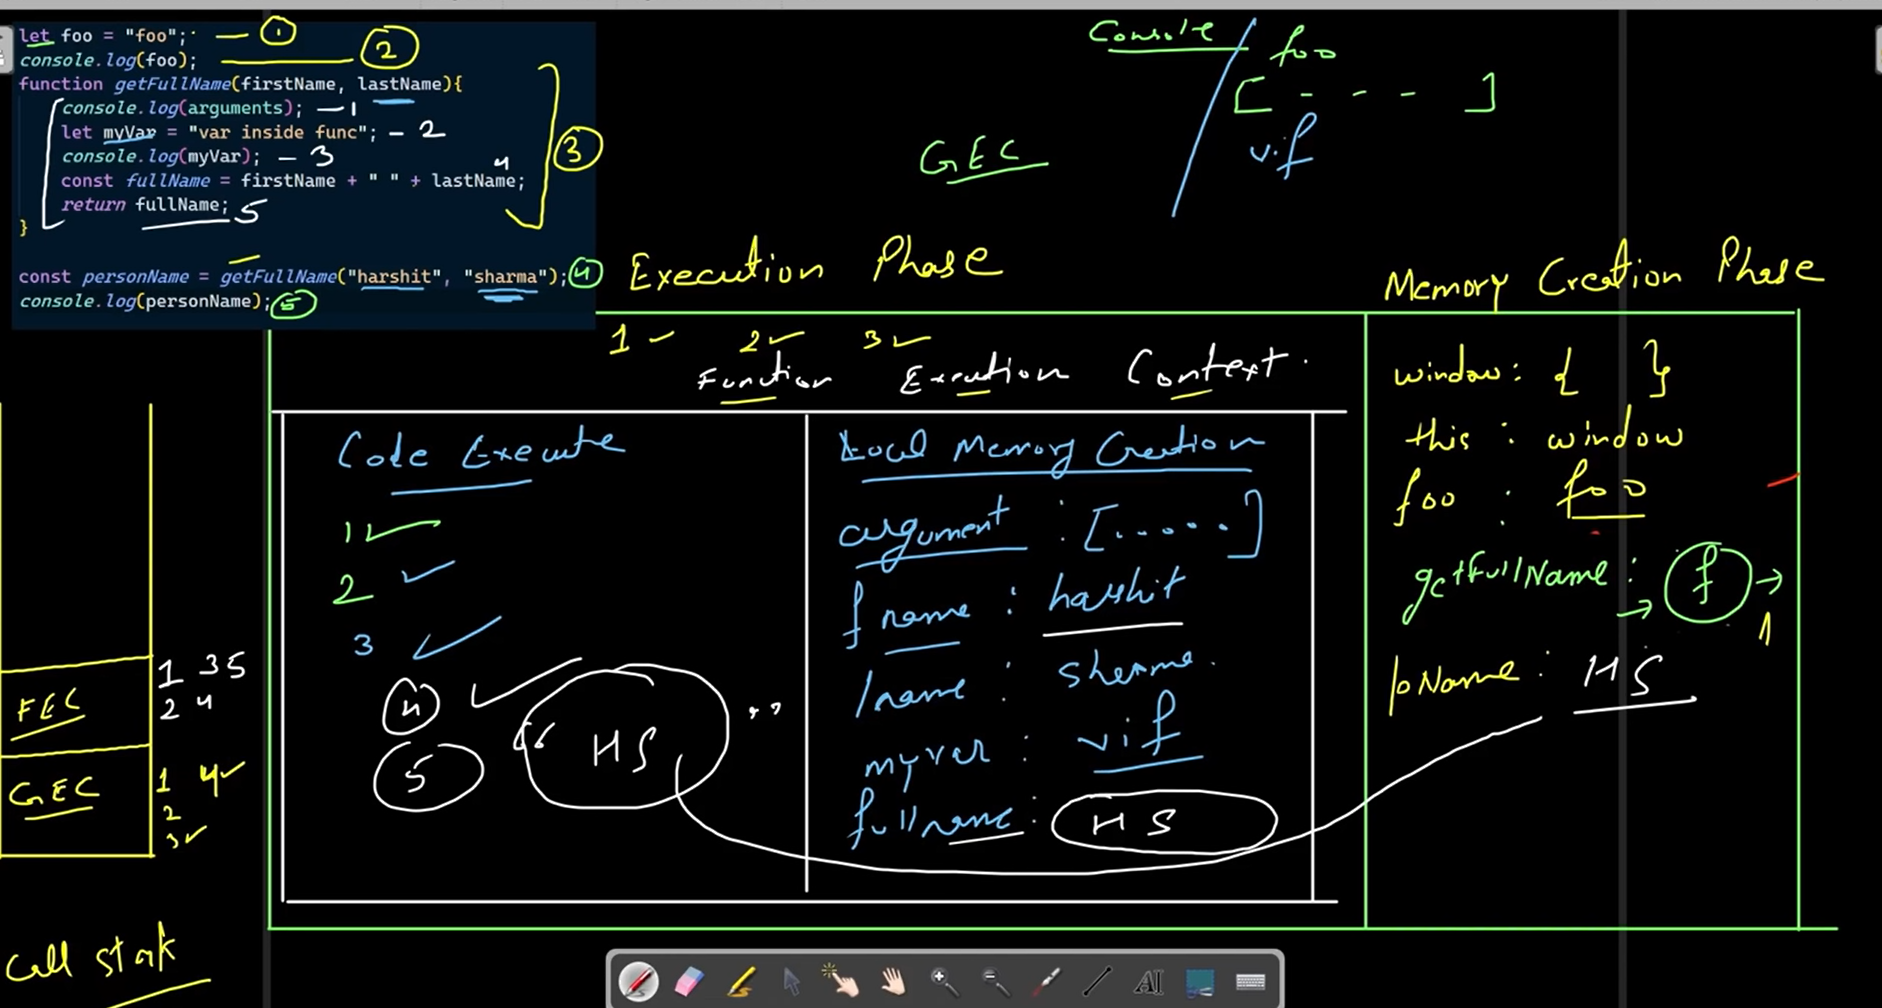 let foo = "foo"; — 1
console.log(foo); 2
function getFullName(firstName, lastName){
console.log(arguments); — 1
let myVar = "var inside func"; — 2
console.log(myVar); — 3
const fullName = firstName + " " + lastName; 4
return fullName; 5
}
3
const personName = getFullName("harshit", "sharma"); 4
console.log(personName); 5
Console
foo
[ - - - ]
vif
GEC
Execution Phase
Memory Creation Phase
1 2 3
Function Execution Context.
Code Execute
1
2
3
4
5 " HS "
Local Memory Creation
argument : [.....]
fname : harshit
lname : sharma.
myvar : vif
fullname : HS
window : { }
this : window
foo : foo
getFullName : f → 1
pName : HS
FEC
1 3 5
2 4
GEC
1 4
2
3
Call stak
AI